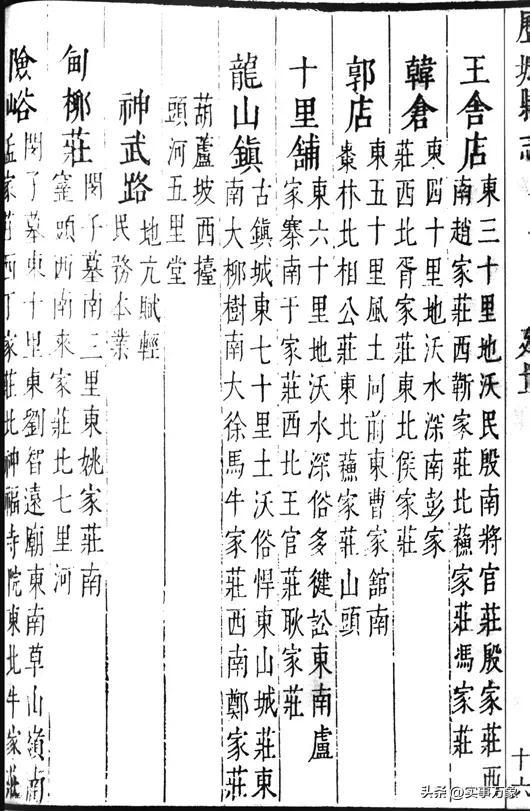 歷城縣志
建置
十六
王舍店
東三十里地沃民殷南將官莊殷家莊西
南趙家莊西靳家莊北蘓家莊馮家莊
韓倉
東四十里地沃水深南彭家
莊西北胥家莊東北侯家莊
郭店
東五十里風土同前東曹家舘南
棗林北相公莊東北蘓家莊山頭
十里舖
東六十里地沃水深俗多健訟東南盧
家寨南于家莊西北王官莊耿家莊
龍山鎮
古鎮城東七十里土沃俗悍東山城莊東
南大柳樹南大徐馬牛家莊西南鄭家莊
葫蘆坡西擡
頭河五里堂
神武路
地亢賦輕
民務本業
甸柳莊
閔子墓南三里東姚家莊南
窰頭西南來家莊北七里河
險峪
閔子墓東十里東劉智遠廟東南草山嶺南
孟家莊西丁家莊北神福寺院東北牛家莊
头条 @实事万象